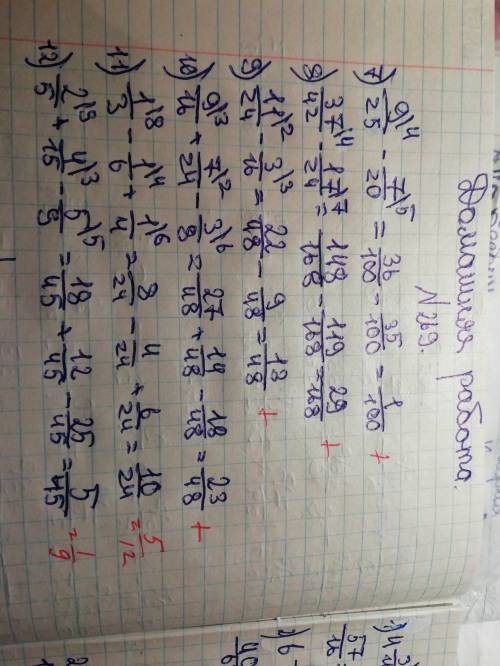 Домашняя работа.
N 269.
7) 9\4/25 - 7\5/20 = 36/100 - 35/100 = 1/100 +
8) 37\4/42 - 17\7/24 = 148/168 - 119/168 = 29/168 +
9) 11\2/24 - 3\3/16 = 22/48 - 9/48 = 13/48 +
10) 9\3/16 + 7\2/24 - 3\6/8 = 27/48 + 14/48 - 18/48 = 23/48 +
11) 1\8/3 - 1\4/6 + 1\6/4 = 8/24 - 4/24 + 6/24 = 10/24 = 5/12
12) 2\9/5 + 4\3/15 - 5\5/9 = 18/45 + 12/45 - 25/45 = 5/45 = 1/9